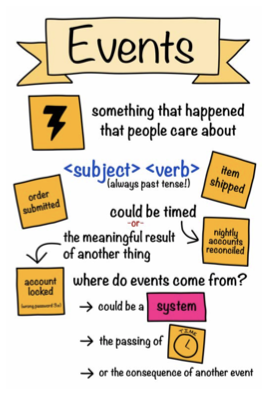 Events
something that happened
that people care about
<subject> <verb>
(always past tense!)
item
shipped
order
submitted
could be timed
-or-
the meaningful result
of another thing
nightly
accounts
reconciled
account
locked
(wrong password 3x)
where do events come from?
→ could be a system
→ the passing of TIME
→ or the consequence of another event